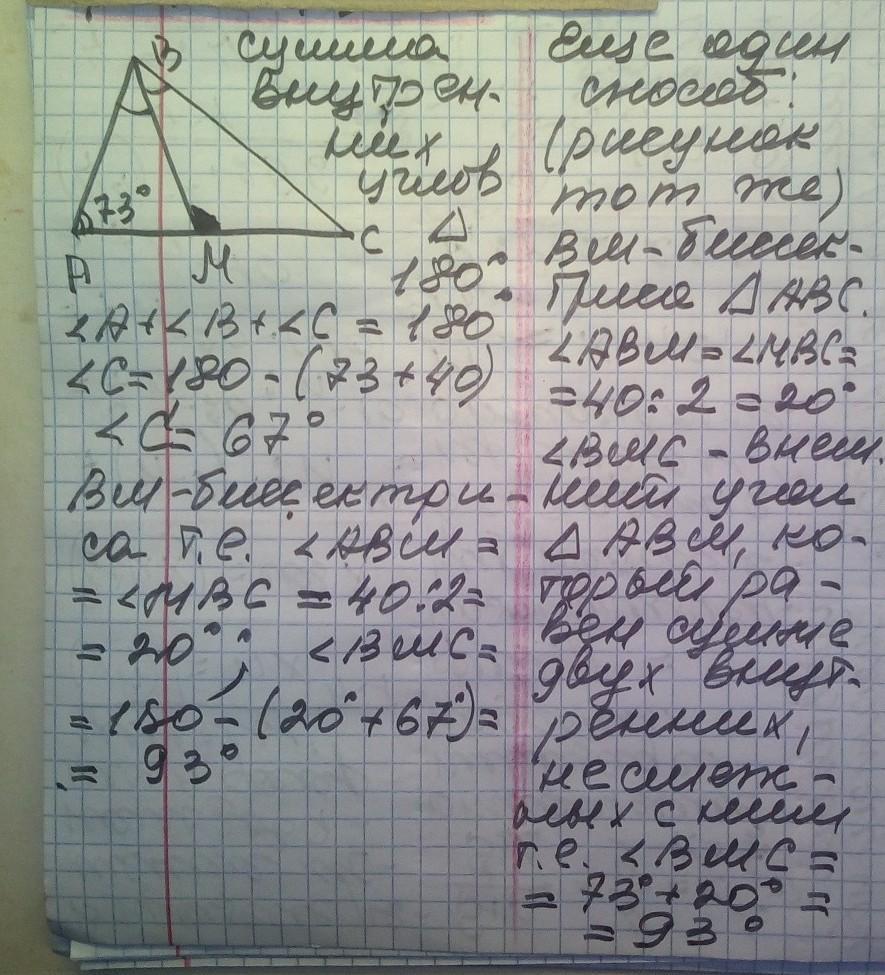 B
73°
A
M
C
сумма
внутрен-
них
углов
Δ
180°
<A + <B + <C = 180°
<C = 180 - (73 + 40)
<C = 67°
BM - биссектри-
са т.е. <ABM =
= <MBC = 40:2 =
= 20°; <BMC =
= 180 - (20° + 67°) =
= 93°
Еще один
способ:
(рисунок
тот же)
BM - биссек-
триса ΔABC.
<ABM = <MBC =
= 40:2 = 20°
<BMC - внеш.
ний угол
Δ ABM, ко-
торый ра-
вен сумме
двух внут-
ренних,
не смеж-
ных с ним
т.е. <BMC =
= 73° + 20° =
= 93°